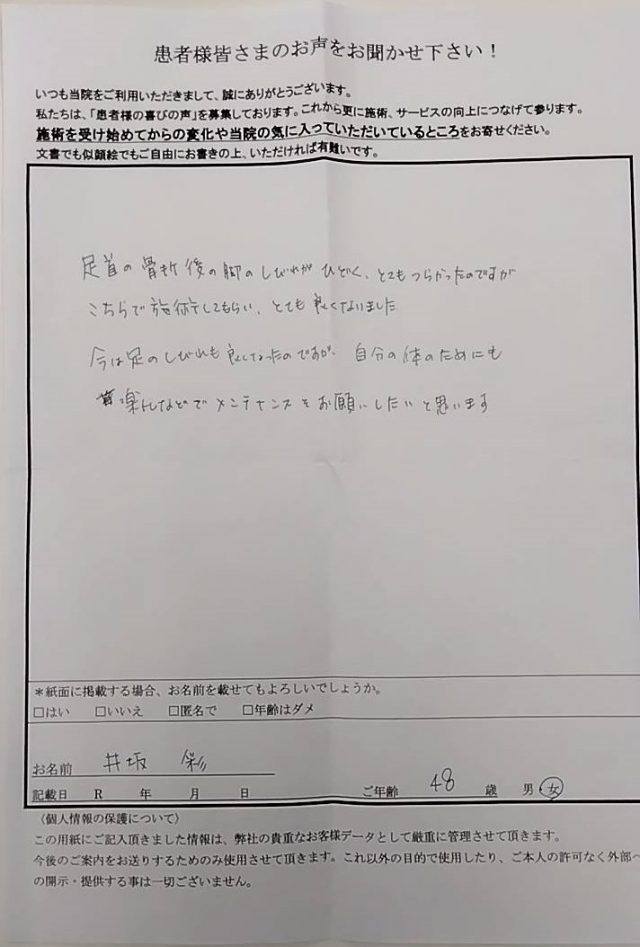 患者様皆さまのお声をお聞かせ下さい！
いつも当院をご利用いただきまして、誠にありがとうございます。
私たちは、「患者様の喜びの声」を募集しております。これから更に施術、サービスの向上につなげて参ります。
施術を受け始めてからの変化や当院の気に入っていただいているところをお寄せください。
文書でも似顔絵でもご自由にお書きの上、いただければ有難いです。
足首の骨折後の脚のしびれがひどく、とてもつらかったのですが
こちらで施術してもらい、とても良くなりました
今は足のしびれも良くなったのですが、自分の体のためにも
楽トレなどでメンテナンスをお願いしたいと思います
＊紙面に掲載する場合、お名前を載せてもよろしいでしょうか。
□はい □いいえ □匿名で □年齢はダメ
お名前 井坂 彩
記載日 R 年 月 日 ご年齢 48 歳 男・女
（個人情報の保護について）
この用紙にご記入頂きました情報は、弊社の貴重なお客様データとして厳重に管理させて頂きます。
今後のご案内をお送りするためのみ使用させて頂きます。これ以外の目的で使用したり、ご本人の許可なく外部へ
の開示・提供する事は一切ございません。